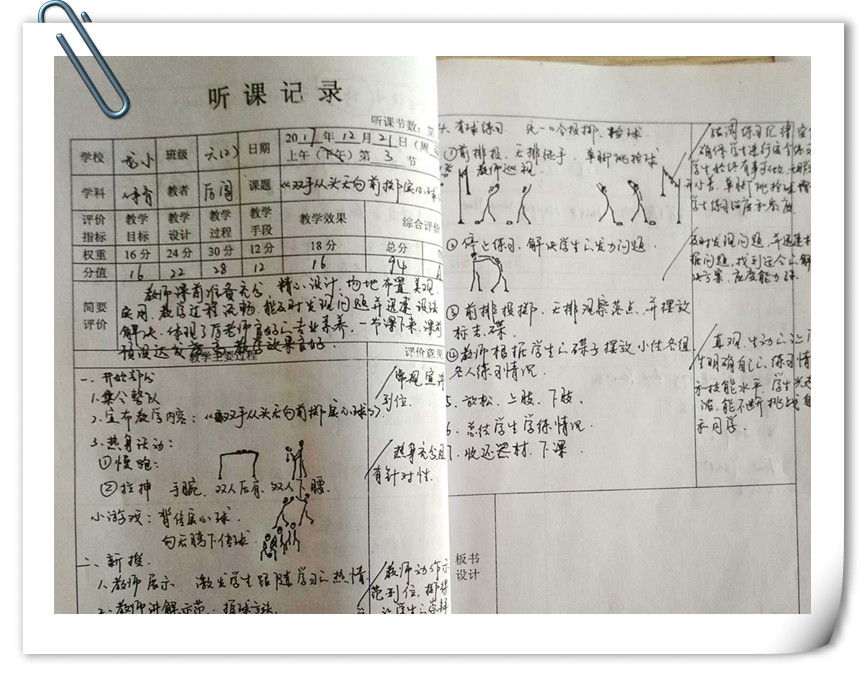 听课记录
听课节数：第
学校 龙小 班级 六(2) 日期 2017年12月21日（周
上午（下午）第3节
学科 体育 教者 厉闯 课题 《双手从头后向前掷实心球
评价指标 教学目标 教学设计 教学过程 教学手段 教学效果 综合评价
权重 16分 24分 30分 12分 18分 总分
分值 16 22 28 12 16 94
简要评价
教师课前准备充分，精心设计，场地布置，美观
实用，教学过程流畅，能及时发现问题并迅速设法
解决，体现了厉老师良好的专业素养，一节课下来，课前
预设达成
教学效果良好.
教学主要过程 评价意见
一、开始部分
1.集合整队
2.宣布教学内容：《双手从头后向前掷实心球》.
3.热身活动：
①慢跑：
②拉抻 手腕、双人压肩、双人下腰.
小游戏：背传实心球.
向后胯下传球.
二、新授.
1.教师展示 激发学生跟随学习的热情
2.教师讲解示范：持球方法
常规宣布
到位.
热身充分且
有针对性.
教师动作示
范到位，
4、有球练习 统一口令投掷、捡球.
①前排投，后排
教师巡视.
②停止练习，解决学生的发力问题.
③前排投掷，后排观察落点，并摆放
标志碟
④教师根据学生的碟子摆放小结各组
各人练习情况.
5、放松、上肢、下肢、
6、总结学生学练情况.
7、收还器材、下课.
确保学生进行
单脚跳捡球
学生练习
及时发现问题，并迅速
据问题，找到适合的解
决方案，应变能力强.
直观、生动的
生明确自己的练习情
和技能水平，学生兴趣
浓，能不断挑战自
和同学.
板书设计